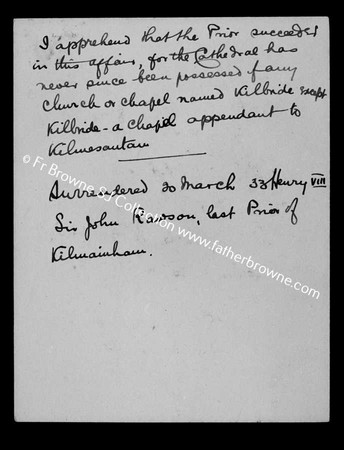 I apprehend that the Prior succeeded
in this affair, for the Cathedral has
never since been possessed of any
church or chapel named Kilbride except
Kilbride - a chapel appendant to
Kilmesantan
Surrendered 20 March 33 Henry VIII
Sir John Rawson, last Prior of
Kilmainham.
© Fr Browne SJ Collection
www.fatherbrowne.com